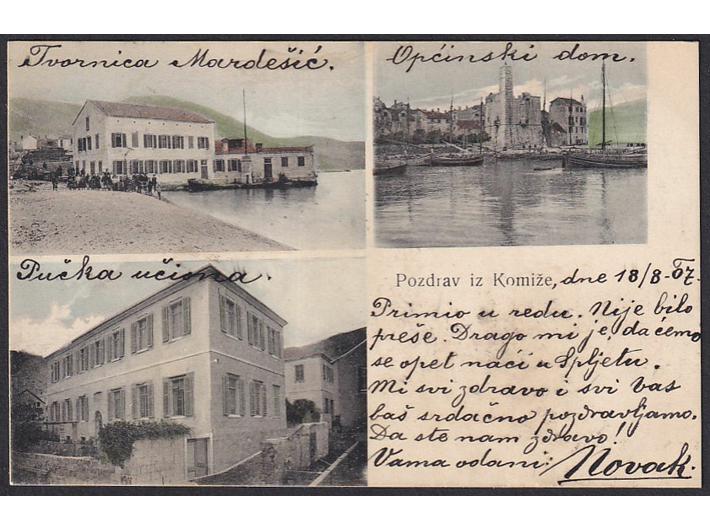 Tvornica Mardešić.
Općinski dom.
Pučka učiona.
Pozdrav iz Komiže, dne 18/8-07.
Primio u redu. Nije bilo
preše. Drago mi je, da ćemo
se opet naći u Spljetu.
Mi svi zdravo i svi Vas
baš srdačno pozdravljamo.
Da ste nam zdravo!
Vama odani: Novak.